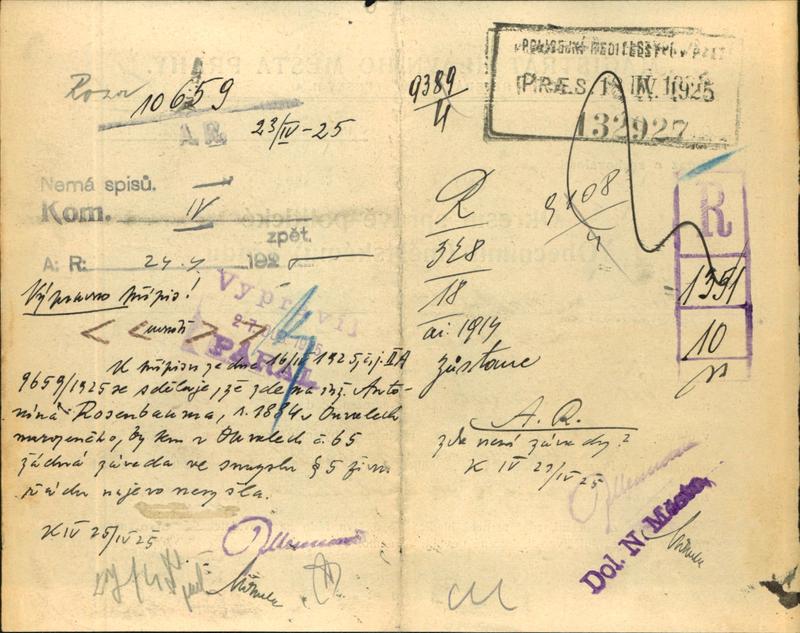 10659
A.R.
23/IV-25
Nemá spisů.
Kom. IV
zpět.
A: R: 24.4 192
Výpravno přípis!
Vypravil
PARAL
K přípisu ze dne 16/IV 1925, č.j. II A
9659/1925 se sděluje, že zde na inž. Anto-
nína Rosenbauma, r. 1884 v Ouvalech
narozeného, by tem v Ouvalech č. 65
žádná závada ve smyslu § 5 živn.
řádu najevo nevyšla.
K IV 25/IV 25
9389
4
POLICEJNÍ ŘEDITELSTVÍ V PRAZE
PRÆS. 18 IV. 1925
132927
R
328
18
ai: 1914
zůstane
9108
4
R
1391
10
A. R.
zde není závady?
K IV 23/IV 25
Dol. N. Město,